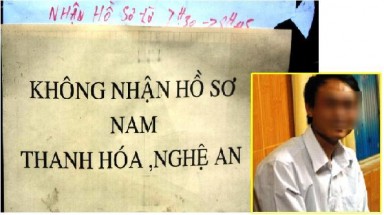 NHẬN HỒ SƠ từ 7H30
KHÔNG NHẬN HỒ SƠ
NAM
THANH HÓA ,NGHỆ AN